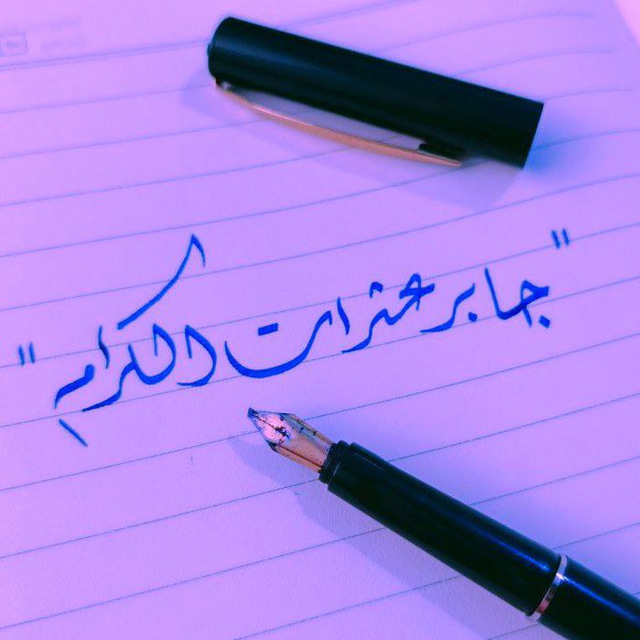 "جابر عثرات الكرام"